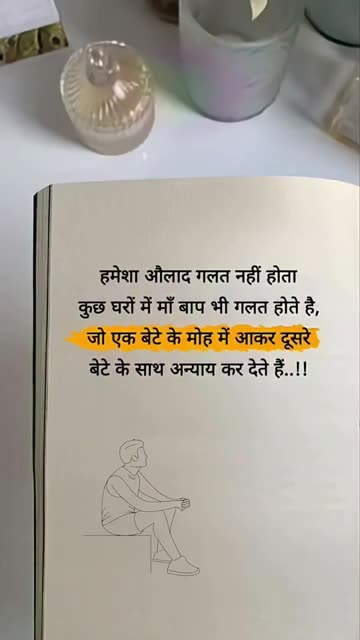 हमेशा औलाद गलत नहीं होता
कुछ घरों में माँ बाप भी गलत होते है,
जो एक बेटे के मोह में आकर दूसरे
बेटे के साथ अन्याय कर देते हैं..!!